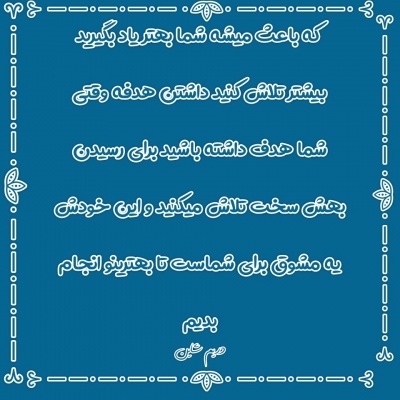 که باعث میشه شما بهتر یاد بگیرید
بیشتر تلاش کنید داشتن هدفه وقتی
شما هدف داشته باشید برای رسیدن
بهش سخت تلاش میکنید و این خودش
یه مشوق برای شماست تا بهترینو انجام
بدیم